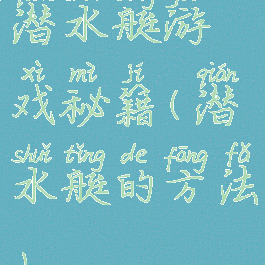 潜水艇游
xì mì jí qián
戏秘籍(潜
shuǐ tǐng de fāng fǎ
水艇的方法
)